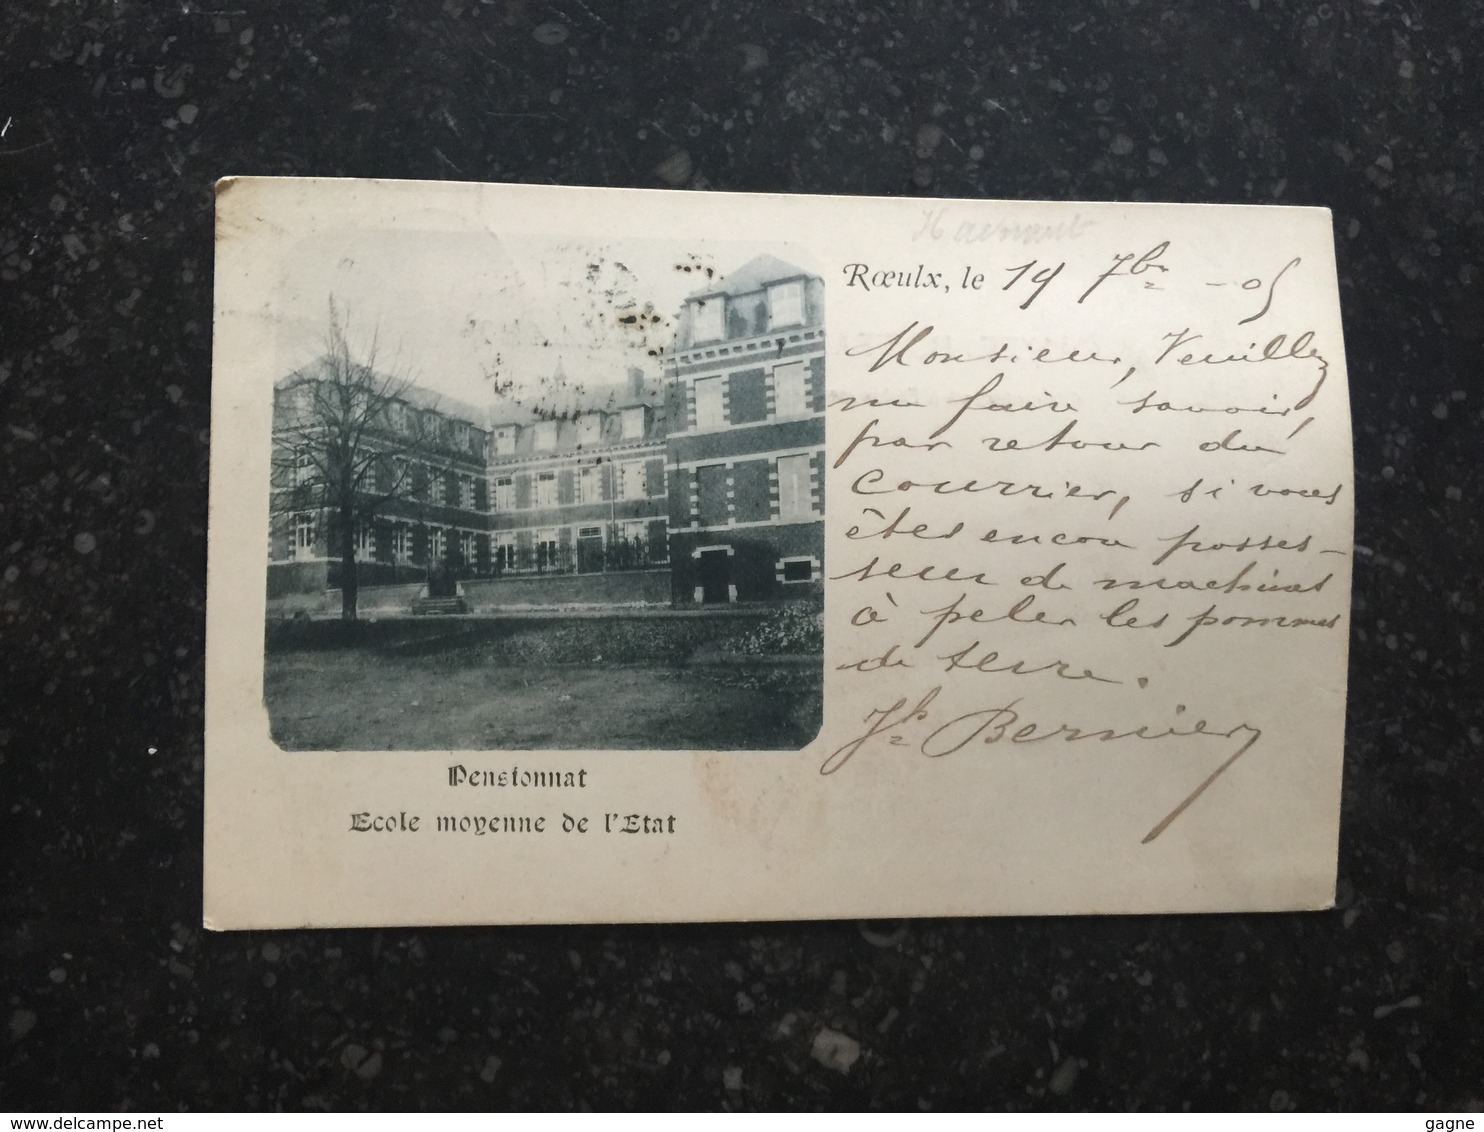 Hainaut
Rœulx, le 19 7bre - 05
Monsieur, Veuillez
me faire savoir,
par retour du
courrier, si vous
êtes encore posses-
seur de machines
à peler les pommes
de terre.
Jh Bernier
Pensionnat
Ecole moyenne de l'Etat
delcampe.net
gagne